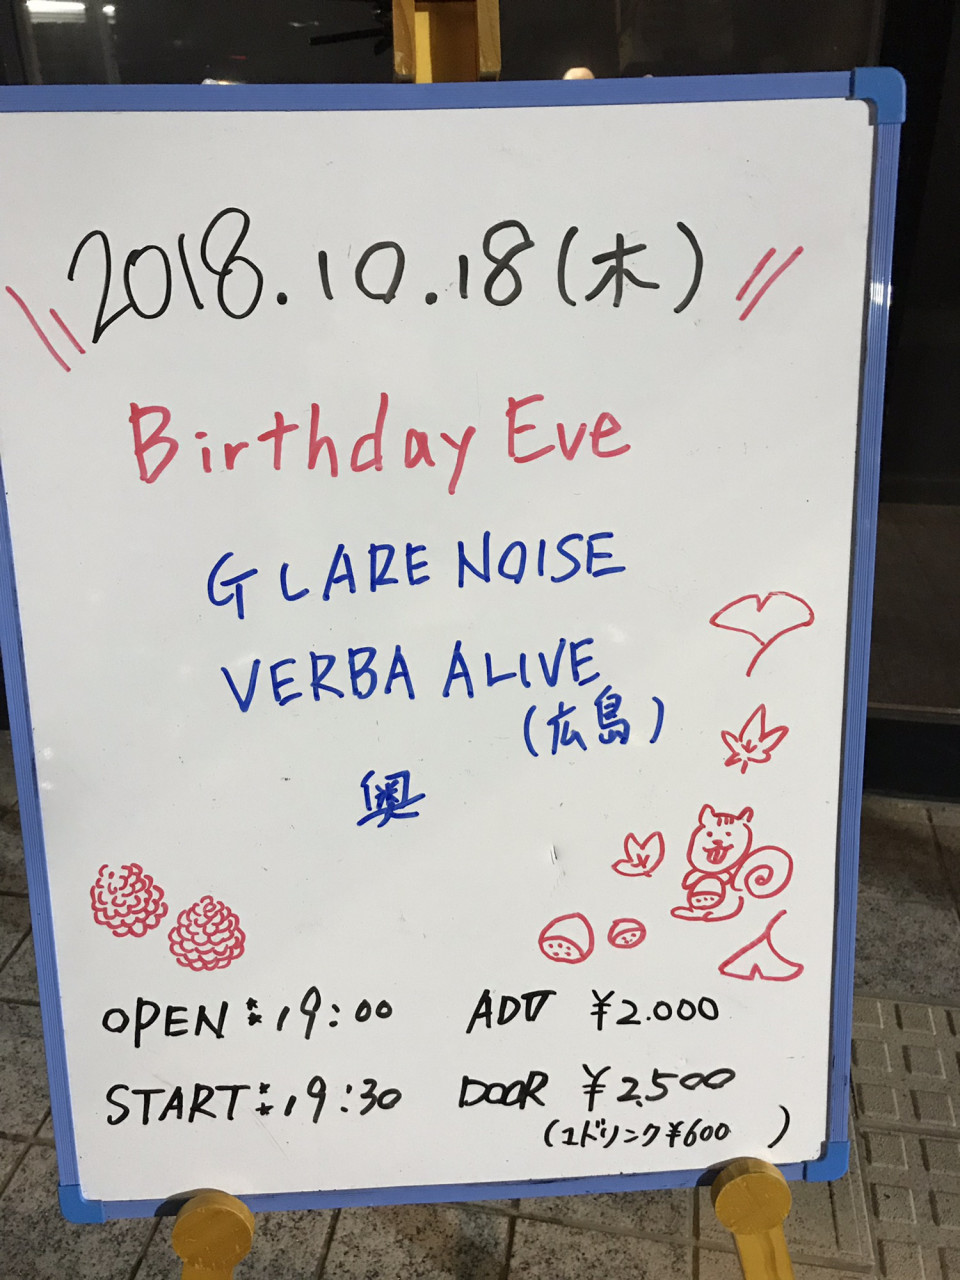 2018.10.18(木)
Birthday Eve
GLARE NOISE
VERBA ALIVE
(広島)
奥
OPEN:19:00 ADV ¥2.000
START:19:30 DOOR ¥2,500
(1ドリンク¥600 )